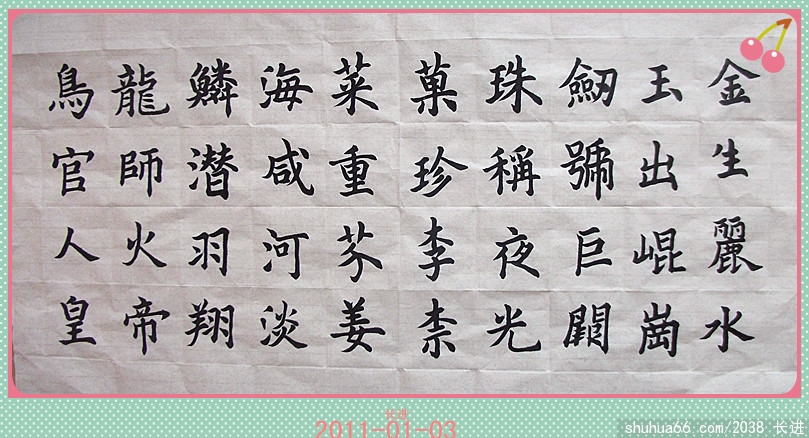 金生麗水
玉出崐崗
劒號巨闕
珠稱夜光
菓珍李柰
菜重芥姜
海咸河淡
鱗潛羽翔
龍師火帝
鳥官人皇
长进
2011-01-03
shuhua66.com/2038 长进